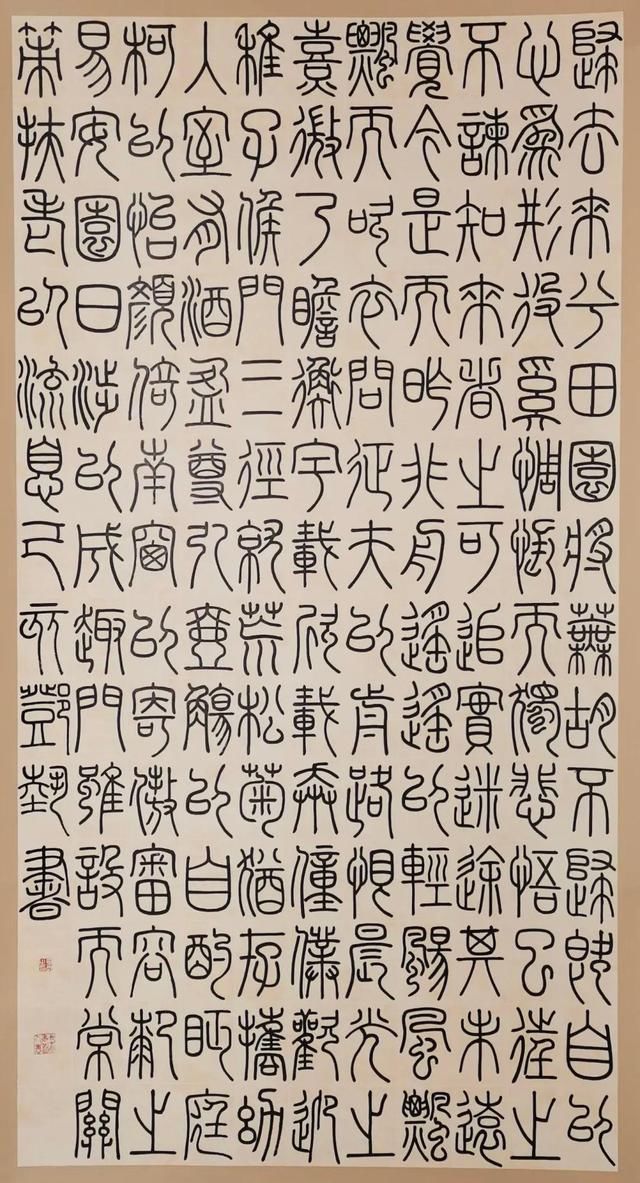 歸去來兮田園將蕪胡不歸既自以
心為形役奚惆悵而獨悲悟已往之
不諫知來者之可追實迷途其未遠
覺今是而昨非舟遙遙以輕颺風飄
飄而吹衣問征夫以前路恨晨光之
熹微乃瞻衡宇載欣載奔僮僕歡迎
稚子候門三徑就荒松菊猶存攜幼
入室有酒盈尊引壺觴以自酌眄庭
柯以怡顏倚南窗以寄傲審容膝之
易安園日涉以成趣門雖設而常關
策扶老以流息己亥鄧書